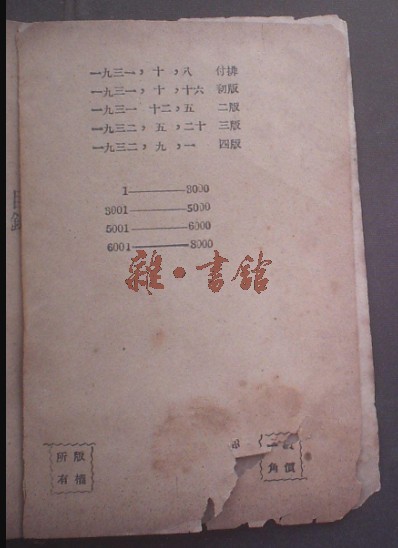 一九三一，十，八 付排
一九三一，十，十六 初版
一九三一 十二，五 二版
一九三二，五，二十 三版
一九三二，九，一 四版
1———3000
3001———5000
5001———6000
6001———8000
雜·書館
版權
所有
角價